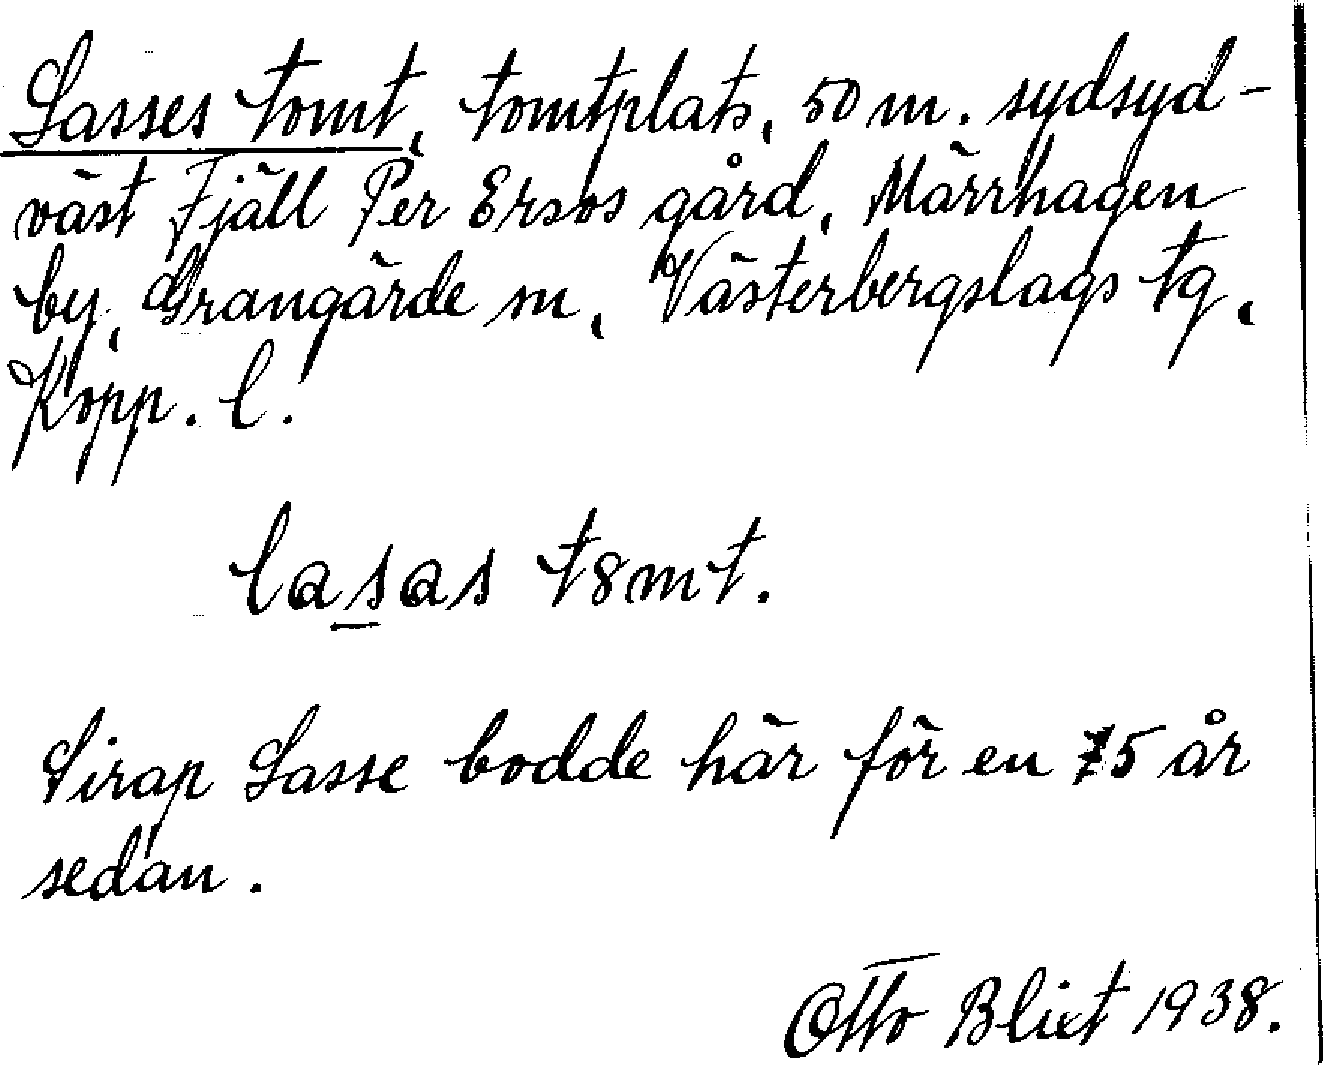 Lasses tomt, tomtplats, 50 m. sydsyd-
väst Fjäll Per Ersos gård, Märrhagen
by, Grangärde sn, Västerbergslags tg,
Kopp. l.
lasas t8mt.
Sirap Lasse bodde här för en 75 år
sedan.
Otto Blixt 1938.